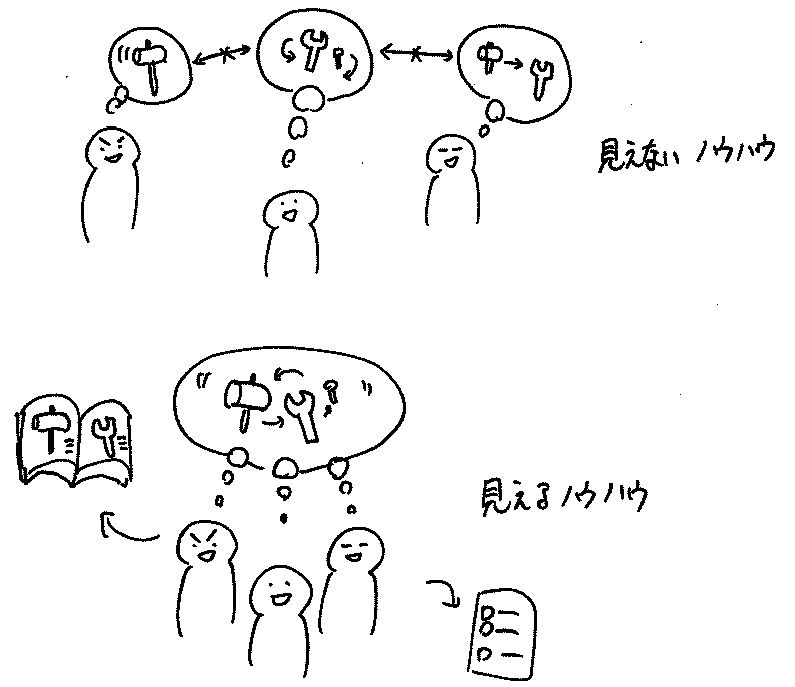 見えない ノウハウ
見える ノウハウ